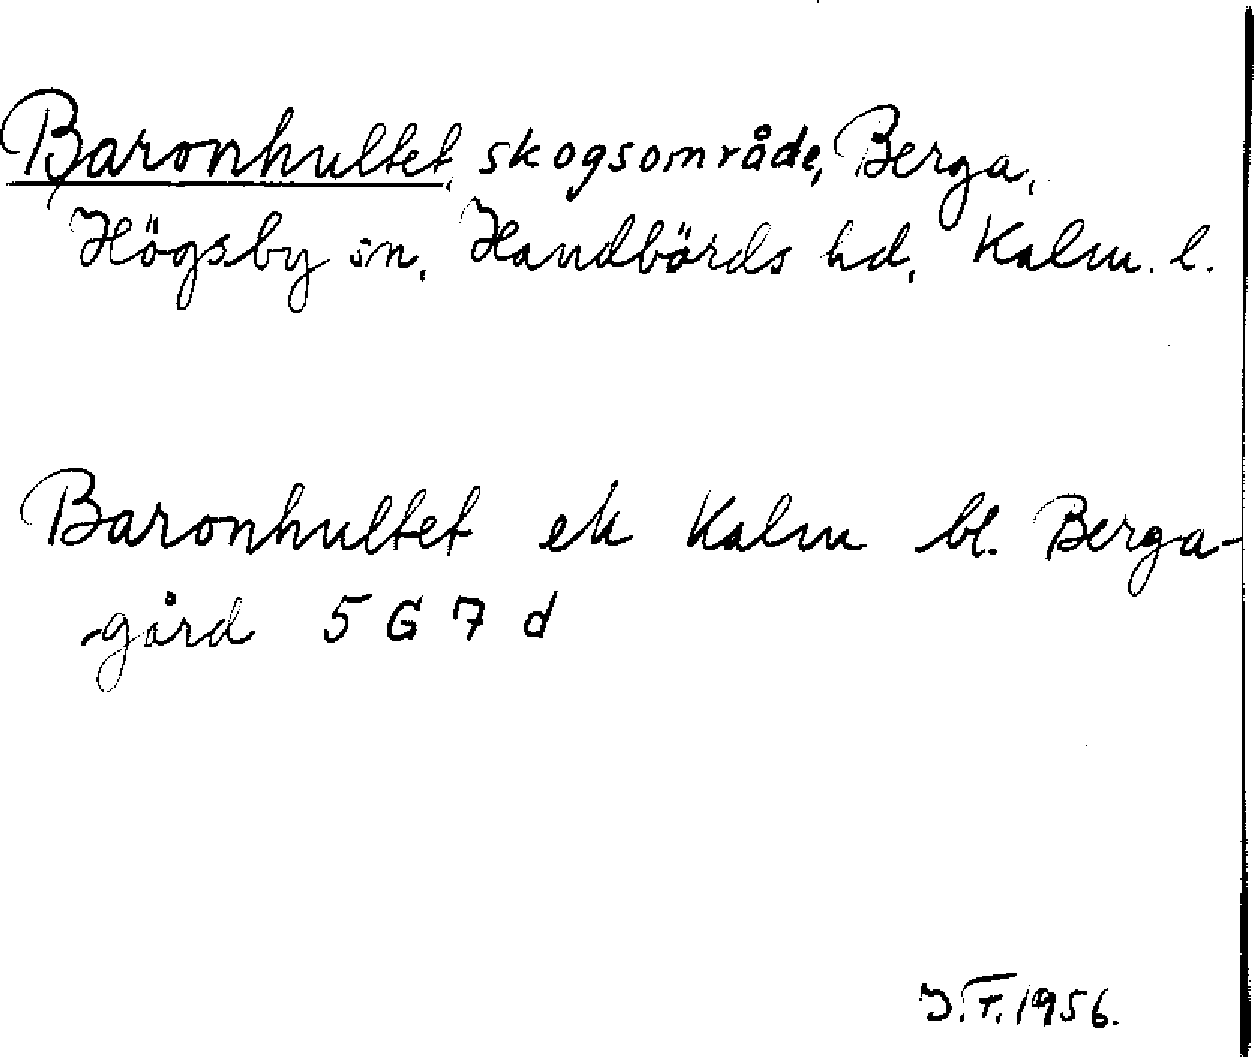 Baronhultet, skogsområde, Berga,
Högsby sn, Handbörds hd, Kalm. l.
Baronhultet ek Kalm bl. Berga-
-gård 5 G 7 d
J.T. 1956.